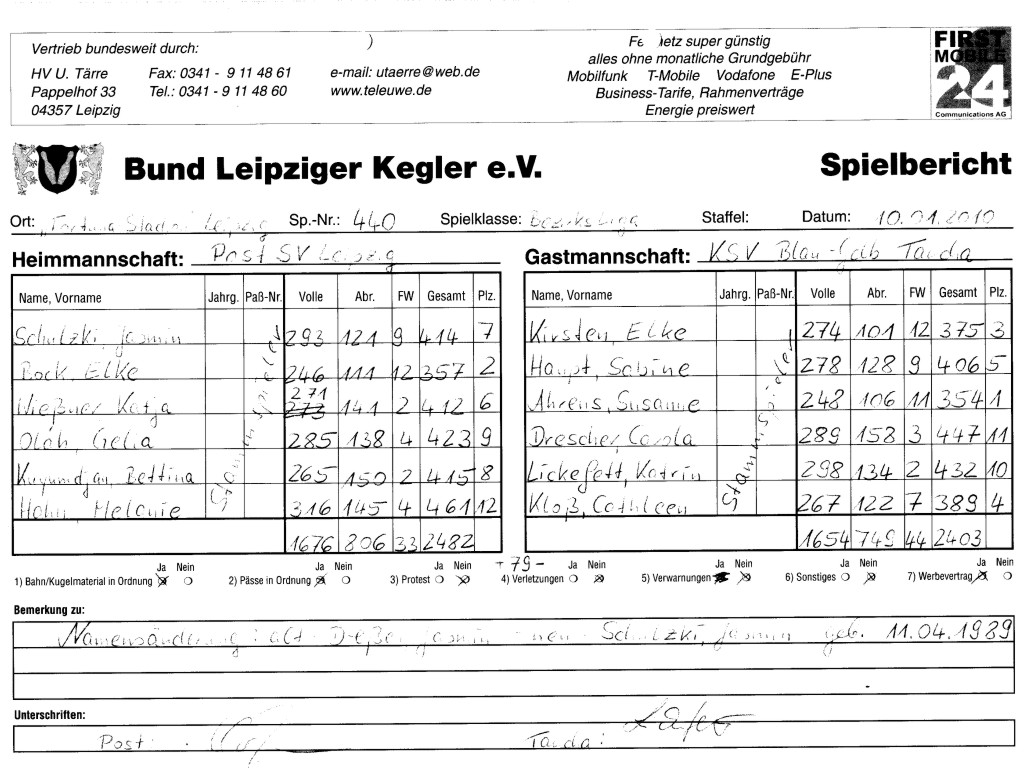 Vertrieb bundesweit durch:
HV U. Tärre Fax: 0341 - 9 11 48 61 e-mail: utaerre@web.de
Pappelhof 33 Tel.: 0341 - 9 11 48 60 www.teleuwe.de
04357 Leipzig
super günstig
alles ohne monatliche Grundgebühr
Mobilfunk T-Mobile Vodafone E-Plus
Business-Tarife, Rahmenverträge
Energie preiswert
FIRST
MOBILE
24
Communications AG
Bund Leipziger Kegler e.V. Spielbericht
Ort: Leipzig Sp.-Nr.: 440 Spielklasse: Bezirksliga Staffel: Datum: 10.01.2010
Heimmannschaft: Post SV Leipzig Gastmannschaft: KSV Blau-Gelb Taucha
Name, Vorname Jahrg. Paß-Nr. Volle Abr. FW Gesamt Plz. Name, Vorname Jahrg. Paß-Nr. Volle Abr. FW Gesamt Plz.
Schulzki, Jasmin 293 121 9 414 7 Kirsten, Elke 274 101 12 375 3
Bock, Elke 246 111 12 357 2 Haupt, Sabine 278 128 9 406 5
Wießner Katja 271 273 141 2 412 6 Ahrens, Susanne 248 106 11 354 1
Olah, Gelia 285 138 4 423 9 Drescher, Carola 289 158 3 447 11
Kuyumdjan, Bettina 265 150 2 415 8 Lickefett, Katrin 298 134 2 432 10
Hahn, Melanie 316 145 4 461 12 Kloß, Cathleen 267 122 7 389 4
Stammspieler Stammspieler
1676 806 33 2482 1654 749 44 2403
+ 79 -
Ja Nein Ja Nein Ja Nein Ja Nein Ja Nein Ja Nein Ja Nein
1) Bahn/Kugelmaterial in Ordnung 2) Pässe in Ordnung 3) Protest 4) Verletzungen 5) Verwarnungen 6) Sonstiges 7) Werbevertrag
Bemerkung zu:
Namensänderung: alt - Dreßer, Jasmin - neu - Schulzki, Jasmin geb. 11.04.1989
Unterschriften:
Post: Taucha: